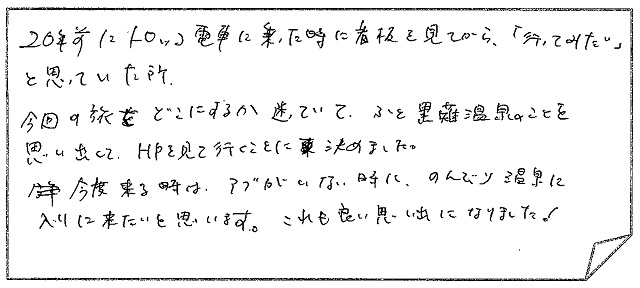 20年前にトロッコ電車に乗った時に看板を見てから、「行ってみたい」
と思っていた所.
今回の旅をどこにするか迷っていて、ふと黒薙温泉のことを
思い出して、HPを見て行くことに決めました。
今度来る時は、アブがいない時に、のんびり温泉に
入りに来たいと思います。これも良い思い出になりました!